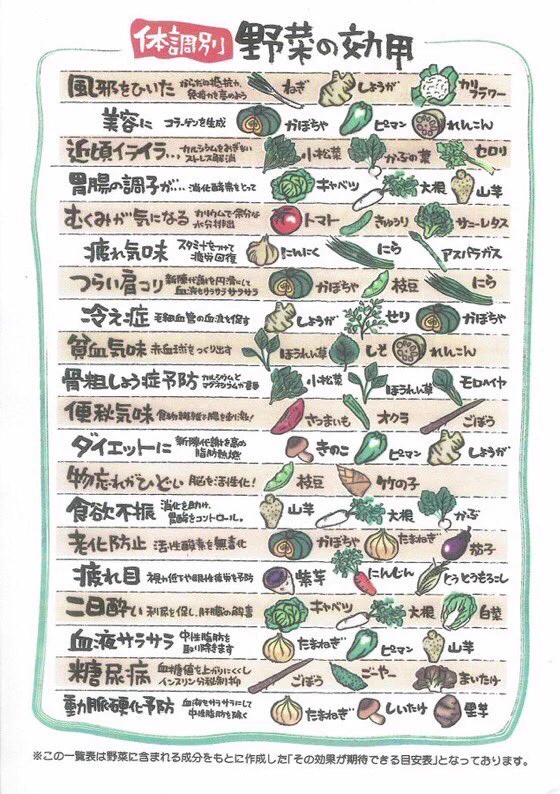 体調別 野菜の効用
風邪をひいた からだの抵抗力、免疫力を高めよう ねぎ しょうが カリフラワー
美容に コラーゲンを生成 かぼちゃ ピーマン れんこん
近頃イライラ・・ カルシウムをおぎないストレス解消 小松菜 かぶの葉 セロリ
胃腸の調子が・・・ 消化酵素をとって キャベツ 大根 山芋
むくみが気になる カリウムで余分な水分排出 トマト きゅうり サニーレタス
疲れ気味 スタミナをつけて疲労回復 にんにく にら アスパラガス
つらい肩コリ 新陳代謝を円滑にして血液をサラサラサラサラ かぼちゃ 枝豆 にら
冷え症 毛細血管の血流を促す しょうが せり かぼちゃ
貧血気味 赤血球をつくり出す ほうれん草 しそ れんこん
骨粗しょう症予防 カルシウムとマグネシウムが豊富 小松菜 ほうれん草 モロヘイヤ
便秘気味 食物繊維で腸を刺激! さつまいも オクラ ごぼう
ダイエットに 新陳代謝を高め脂肪燃焼 きのこ ピーマン しょうが
物忘れがひどい 脳を活性化! 枝豆 竹の子
食欲不振 消化を助け、胃酸をコントロール。 山芋 大根 かぶ
老化防止 活性酸素を無毒化 かぼちゃ たまねぎ 茄子
疲れ目 視力低下や眼性疲労を予防 紫芋 にんじん とうもろこし
二日酔い 利尿を促し、肝臓の解毒 キャベツ 大根 白菜
血液サラサラ 中性脂肪を取り除きます たまねぎ ピーマン 山芋
糖尿病 血糖値を上がりにくくしインスリン分泌制抑 ごぼう ごーやー まいたけ
動脈硬化予防 血液をサラサラにして中性脂肪を除く たまねぎ しいたけ 里芋
※この一覧表は野菜に含まれる成分をもとに作成した「その効果が期待できる目安表」となっております。